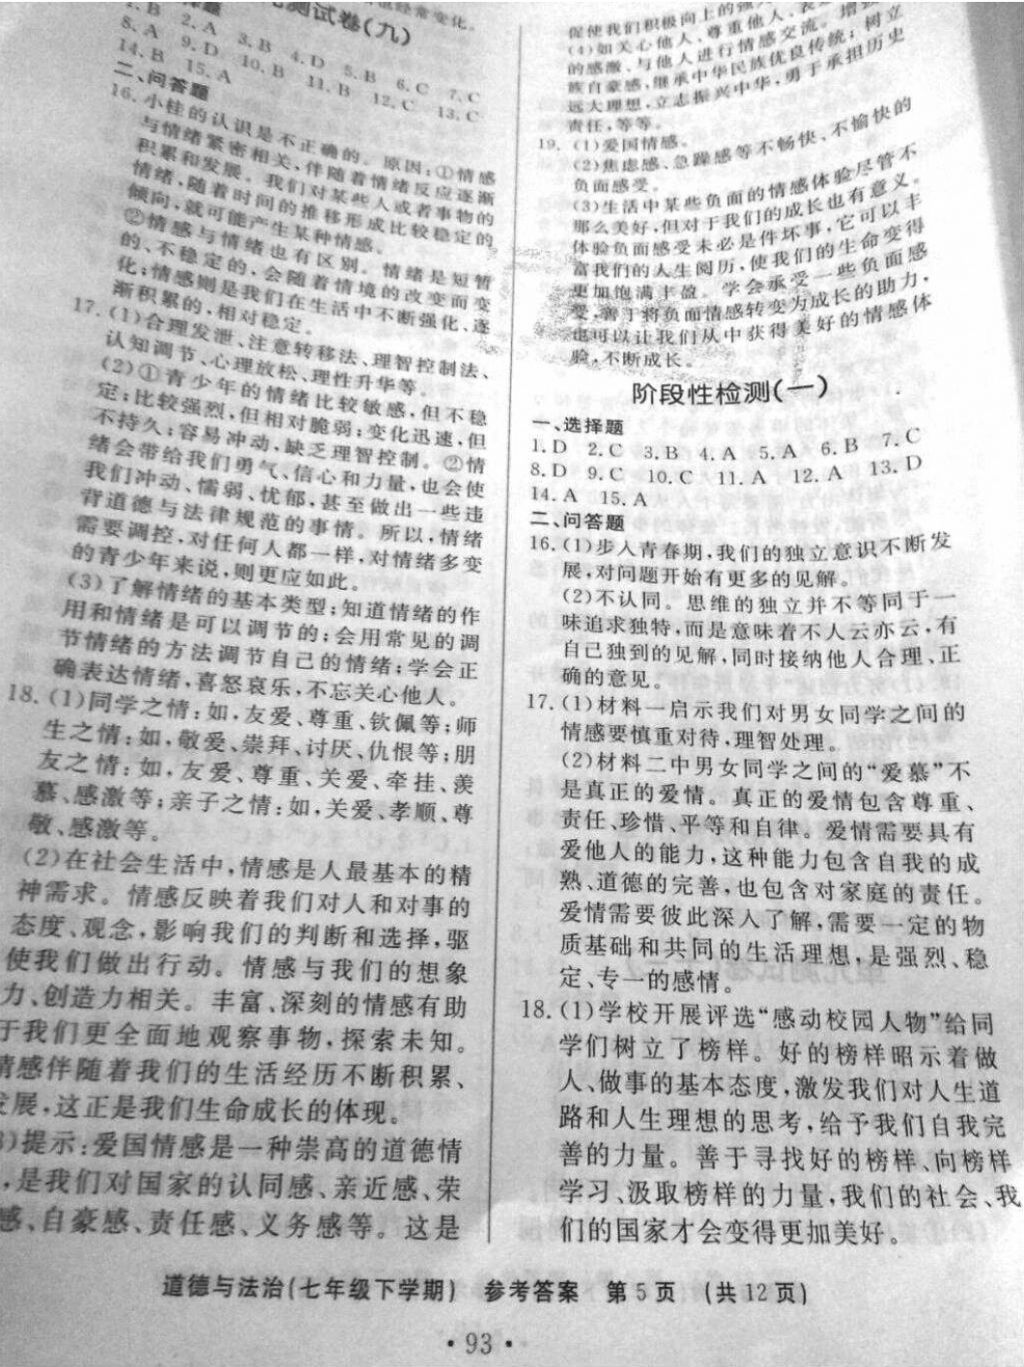 测试卷(九)
2. A 3. B 4. D 5. B 6. C 7. C
8. A 9. D 10. B 11. B 12. C 13. C
14. B 15. A
二、问答题
16. 小桂的认识是不正确的。原因:①情感
与情绪紧密相关,伴随着情绪反应逐渐
积累和发展。我们对某些人或者事物的
情绪,随着时间的推移形成比较稳定的
倾向,就可能产生某种情感。
②情感与情绪也有区别。情绪是短暂
的、不稳定的,会随着情境的改变而变
化;情感则是我们在生活中不断强化、逐
渐积累的,相对稳定。
17. (1)合理发泄、注意转移法、理智控制法、
认知调节、心理放松、理性升华等。
(2)①青少年的情绪比较敏感,但不稳
定;比较强烈,但相对脆弱;变化迅速,但
不持久;容易冲动,缺乏理智控制。②情
绪会带给我们勇气、信心和力量,也会使
我们冲动、懦弱、忧郁,甚至做出一些违
背道德与法律规范的事情。所以,情绪
需要调控,对任何人都一样,对情绪多变
的青少年来说,则更应如此。
(3)了解情绪的基本类型;知道情绪的作
用和情绪是可以调节的;会用常见的调
节情绪的方法调节自己的情绪;学会正
确表达情绪,喜怒哀乐,不忘关心他人。
18. (1)同学之情:如,友爱、尊重、钦佩等;师
生之情:如,敬爱、崇拜、讨厌、仇恨等;朋
友之情:如,友爱、尊重、关爱、牵挂、羡
慕、感激等;亲子之情:如,关爱、孝顺、尊
敬、感激等。
(2)在社会生活中,情感是人最基本的精
神需求。情感反映着我们对人和对事的
态度、观念,影响我们的判断和选择,驱
使我们做出行动。情感与我们的想象
力、创造力相关。丰富、深刻的情感有助
于我们更全面地观察事物,探索未知。
情感伴随着我们的生活经历不断积累、
发展,这正是我们生命成长的体现。
)提示:爱国情感是一种崇高的道德情
,是我们对国家的认同感、亲近感、荣
感、自豪感、责任感、义务感等。这是
促使我们积极向上的强大
(4)如关心他人、尊重他人、
的感激、与他人进行情感交流。
族自豪感,继承中华民族优良传统;树立
远大理想,立志振兴中华,勇于承担历史
责任,等等。
19. (1)爱国情感。
(2)焦虑感、急躁感等不畅快、不愉快的
负面感受。
(3)生活中某些负面的情感体验尽管不
那么美好,但对于我们的成长也有意义。
体验负面感受未必是件坏事,它可以丰
富我们的人生阅历,使我们的生命变得
更加饱满丰盈。学会承受一些负面感
受,善于将负面情感转变为成长的助力,
也可以让我们从中获得美好的情感体
验,不断成长。
阶段性检测(一)
一、选择题
1. D 2. C 3. B 4. A 5. A 6. B 7. C
8. D 9. C 10. C 11. A 12. A 13. D
14. A 15. A
二、问答题
16. (1)步入青春期,我们的独立意识不断发
展,对问题开始有更多的见解。
(2)不认同。思维的独立并不等同于一
味追求独特,而是意味着不人云亦云,有
自己独到的见解,同时接纳他人合理、正
确的意见。
17. (1)材料一启示我们对男女同学之间的
情感要慎重对待,理智处理。
(2)材料二中男女同学之间的“爱慕”不
是真正的爱情。真正的爱情包含尊重、
责任、珍惜、平等和自律。爱情需要具有
爱他人的能力,这种能力包含自我的成
熟、道德的完善,也包含对家庭的责任。
爱情需要彼此深入了解,需要一定的物
质基础和共同的生活理想,是强烈、稳
定、专一的感情。
18. (1)学校开展评选“感动校园人物”给同
学们树立了榜样。好的榜样昭示着做
人、做事的基本态度,激发我们对人生道
路和人生理想的思考,给予我们自我完
善的力量。善于寻找好的榜样、向榜样
学习、汲取榜样的力量,我们的社会、我
们的国家才会变得更加美好。
道德与法治(七年级下学期) 参考答案 第5页 (共12页)
· 93 ·